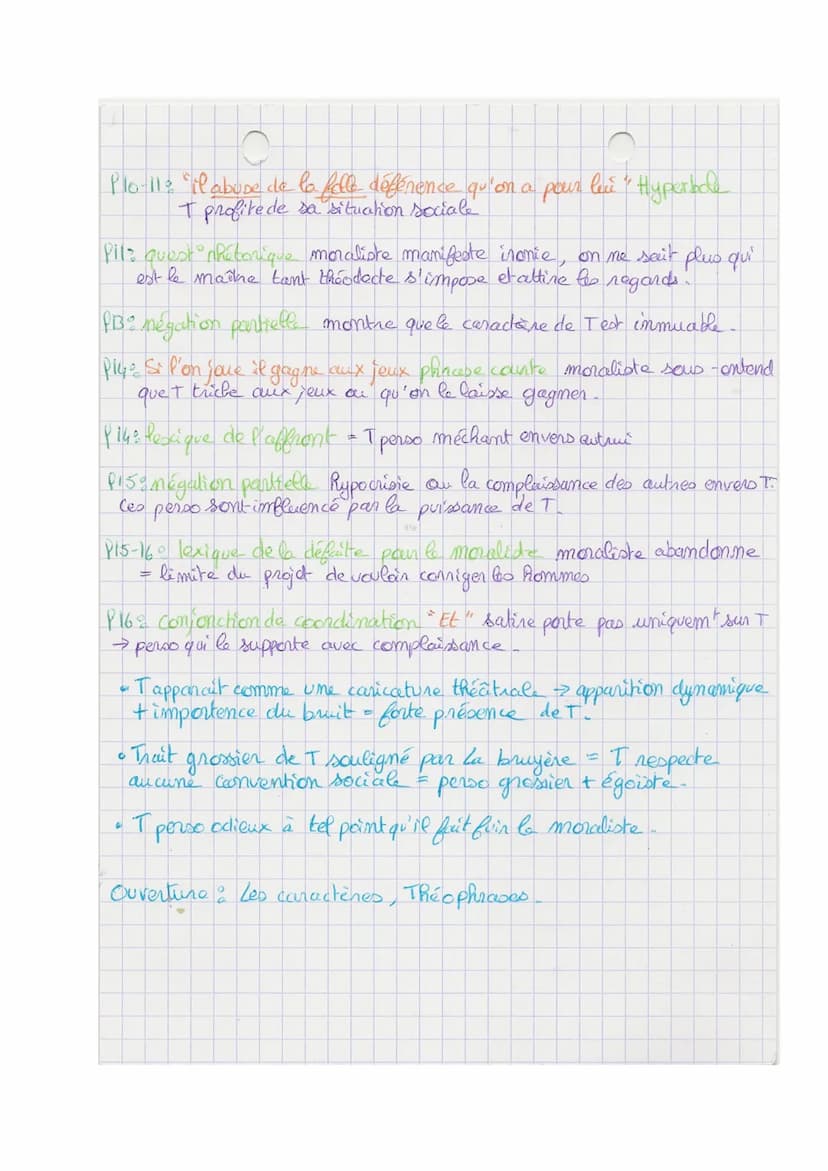 P10-11: "il abuse de la folle déférence qu'on a pour lui" Hyperbole
T profite de sa situation sociale
P11: quest° rhétorique moraliste manifeste ironie, on ne sait plus qui
est le maître tant théodecte s'impose et attire les regards.
P13: négation partielle montre que le caractère de T est immuable.
P14: Si l'on joue il gagne aux jeux phrase courte moraliste sous-entend
que T triche aux jeux ou qu'on le laisse gagner.
P14: lexique de l'affront = T perso méchant envers autrui
P15: négation partielle Hypocrisie ou la complaissance des autres envers T.
Ces perso sont influencé par la puissance de T.
P15-16: lexique de la défaite pour le moraliste moraliste abandonne
= limite du projet de vouloir corriger les Hommes
P16: conjonction de coordination "Et" satire porte pas uniquemt sur T
→ perso qui le supporte avec complaissance.
• T apparait comme une caricature théâtrale → apparition dynamique
+ importence du bruit = forte présence de T.
• Trait grossier de T souligné par La bruyère = T respecte
aucune convention sociale = perso grossier + égoïste.
• T perso odieux à tel point qu'il fait fuir le moraliste.
Ouverture: Les caractères, Théophrases.